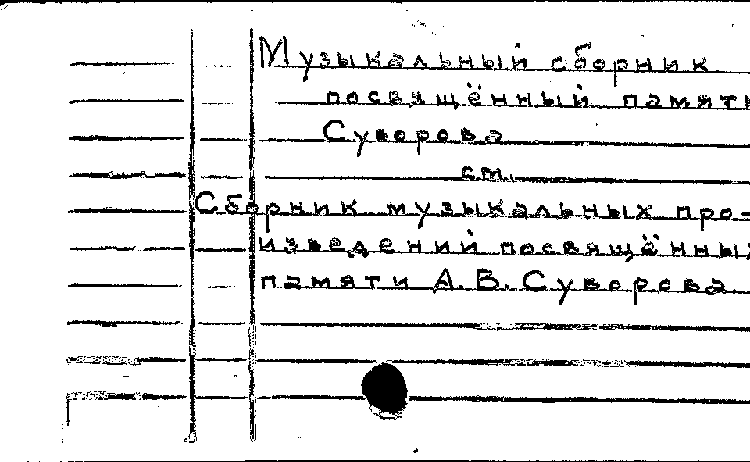 Музыкальный сборник
посвящённый памяти
Суворова
ст.
Сборник музыкальных про=
изведений посвящённых
памяти А.В.Суворова